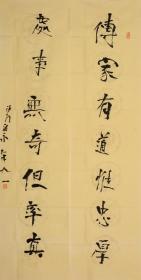 傳家有道惟忠厚
處事無奇但率真